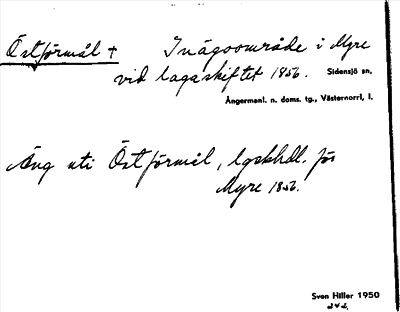 Östförmål + Inägoområde i Myre
vid lagaskiftet 1856. Sidensjö sn.
Ångermanl. n. doms. tg., Västernorrl. l.
Äng uti Östförmål, lgskhdl. för
Myre 1856.
Sven Hiller 1950